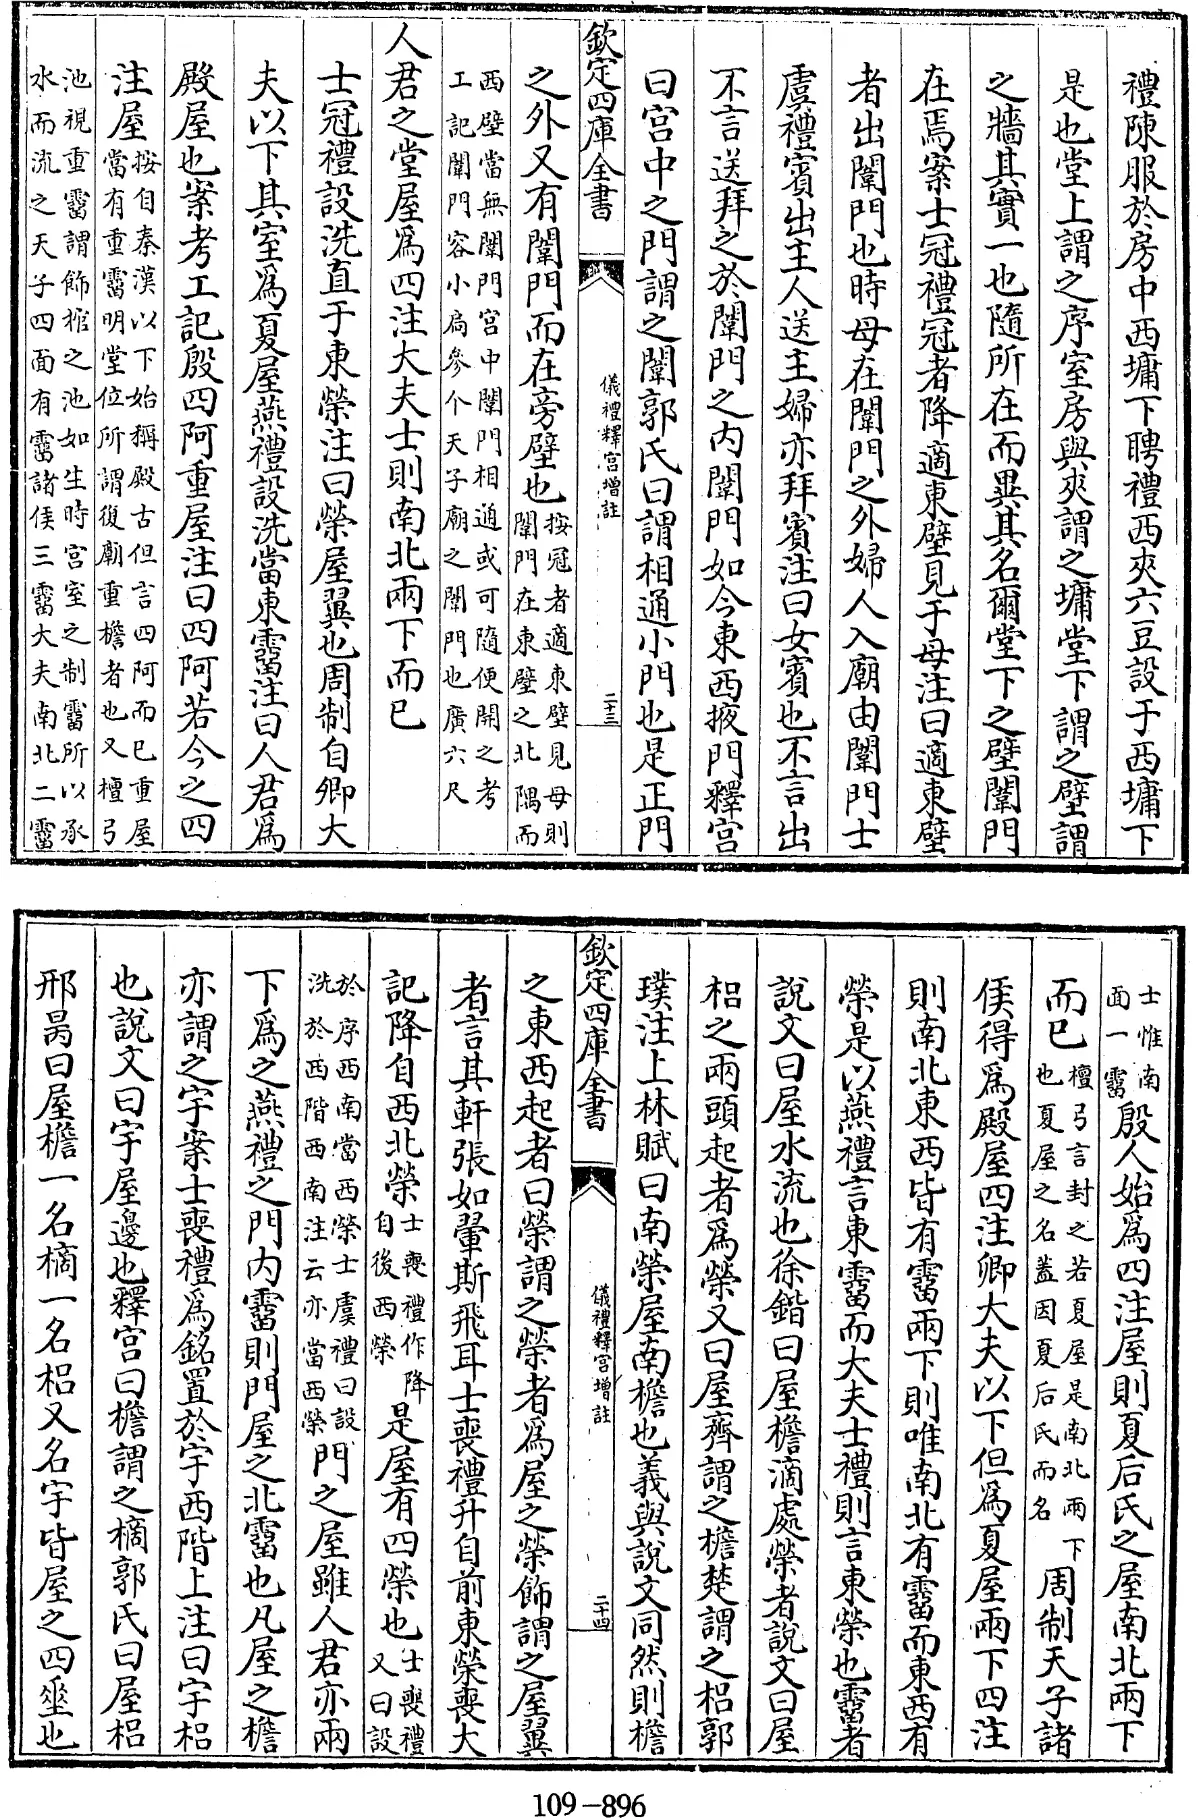 禮陳服於房中西墉下聘禮西夾六豆設于西墉下
是也堂上謂之序室房與夾謂之墉堂下謂之壁謂
之牆其實一也隨所在而異其名爾堂下之壁闈門
在焉案士冠禮冠者降適東壁見于母注曰適東壁
者出闈門也時母在闈門之外婦人入廟由闈門士
虞禮賓出主人送主婦亦拜賓注曰女賓也不言出
不言送拜之於闈門之内闈門如今東西掖門釋宫
曰宫中之門謂之闈郭氏曰謂相通小門也是正門
欽定四庫全書
儀禮釋宫增註
二十三
之外又有闈門而在旁壁也按冠者適東壁見母則
闈門在東壁之北隅而
西壁當無闈門宫中闈門相通或可隨便開之考
工記闈門容小扃參个天子廟之闈門也廣六尺
人君之堂屋為四注大夫士則南北兩下而已
士冠禮設洗直于東榮注曰榮屋翼也周制自卿大
夫以下其室為夏屋燕禮設洗當東霤注曰人君為
殿屋也案考工記殷四阿重屋注曰四阿若今之四
注屋按自秦漢以下始稱殿古但言四阿而已重屋
當有重霤明堂位所謂復廟重檐者也又檀弓
池視重霤謂飾棺之池如生時宫室之制霤所以承
水而流之天子四面有霤諸侯三霤大夫南北二霤
士惟南
面一霤殷人始為四注屋則夏后氏之屋南北兩下
而已檀弓言封之若夏屋是南北兩下
也夏屋之名蓋因夏后氏而名周制天子諸
侯得為殿屋四注卿大夫以下但為夏屋兩下四注
則南北東西皆有霤兩下則唯南北有霤而東西有
榮是以燕禮言東霤而大夫士禮則言東榮也霤者
說文曰屋水流也徐鍇曰屋檐滴處榮者說文曰屋
梠之兩頭起者為榮又曰屋齊謂之檐楚謂之梠郭
璞注上林賦曰南榮屋南檐也義與說文同然則檐
欽定四庫全書
儀禮釋宫增註
二十四
之東西起者曰榮謂之榮者為屋之榮飾謂之屋翼
者言其軒張如翬斯飛耳士喪禮升自前東榮喪大
記降自西北榮士喪禮作降
自後西榮是屋有四榮也士喪禮
又曰設
於序西南當西榮士虞禮曰設
洗於西階西南注云亦當西榮門之屋雖人君亦兩
下為之燕禮之門内霤則門屋之北霤也凡屋之檐
亦謂之宇案士喪禮為銘置於宇西階上注曰宇梠
也說文曰宇屋邊也釋宫曰檐謂之樀郭氏曰屋梠
邢昺曰屋檐一名樀一名梠又名宇皆屋之四垂也
109-896